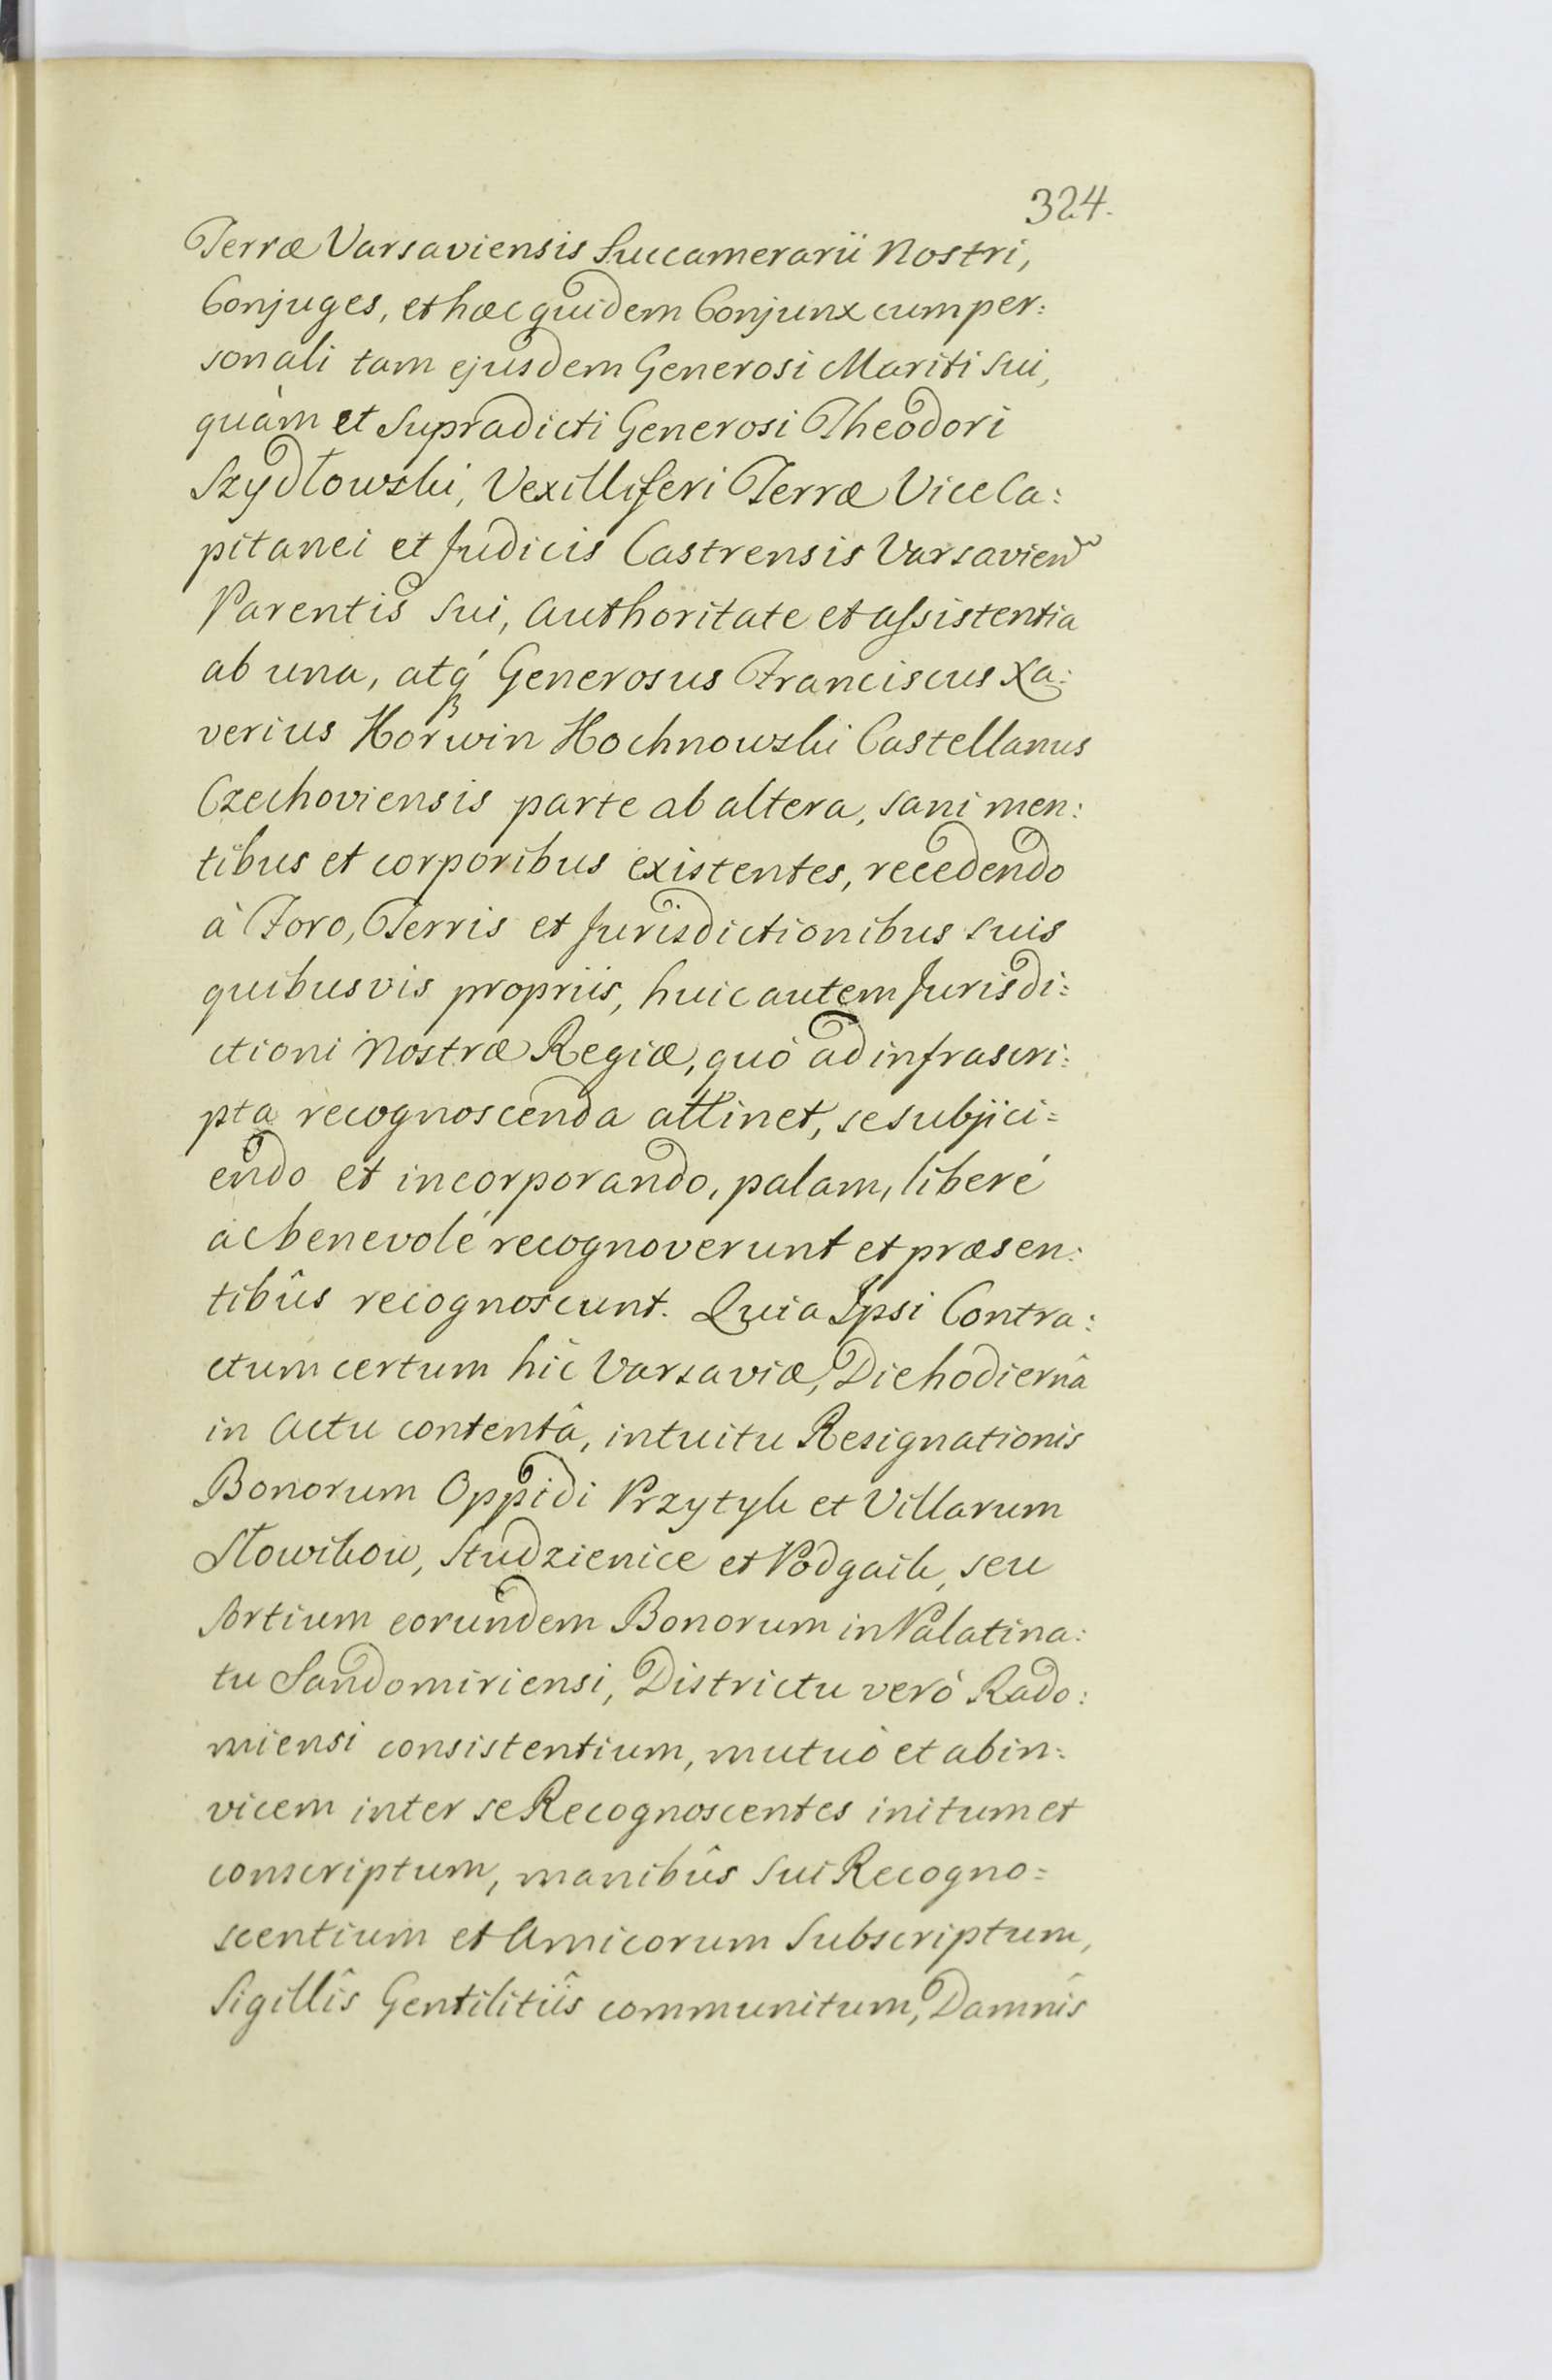 324.
Terræ Varsaviensis Succamerarii Nostri,
Conjuges, et hæc quidem Conjunx cum per:
sonali tam ejusdem Generosi Mariti sui,
quàm et Supradicti Generosi Theodori
Szydłowski, Vexilliferi Terræ ViceCa:
pitanei et Judicis Castrensis Varsavien
Parentis sui, Authoritate et assistentia
ab una, atq́ Generosus Franciscus Xa:
verius Korwin Kochnowski Castellanus
Czechoviensis parte ab altera, sani men:
tibus et corporibus existentes, recedendo
à Foro, Terris et Jurisdictionibus suis
quibusvis propriis, huic autem Jurisdi:
ctioni Nostræ Regiæ, quò ad infrascri:
pta recognoscenda attinet, se subjici=
endo et incorporando, palam, liberé
ac benevolé recognoverunt et præsen:
tibûs recognoscunt. Quia Ipsi Contra:
ctum certum hîc Varsaviæ, Die hodiernâ
in Actu contentâ, intuitu Resignationis
Bonorum Oppidi Przytyk et Villarum
Słowikow, Studzienice et Podgaik, seu
Sortium eorundem Bonorum in Palatina:
tu Sandomiriensi, Districtu verò Rado:
miensi consistentium, mutuò et abin:
vicem inter se Recognoscentes initum et
conscriptum, manibûs sui Recogno=
scentium et Amicorum Subscriptum,
Sigillîs Gentilitiîs communitum, Damnîs